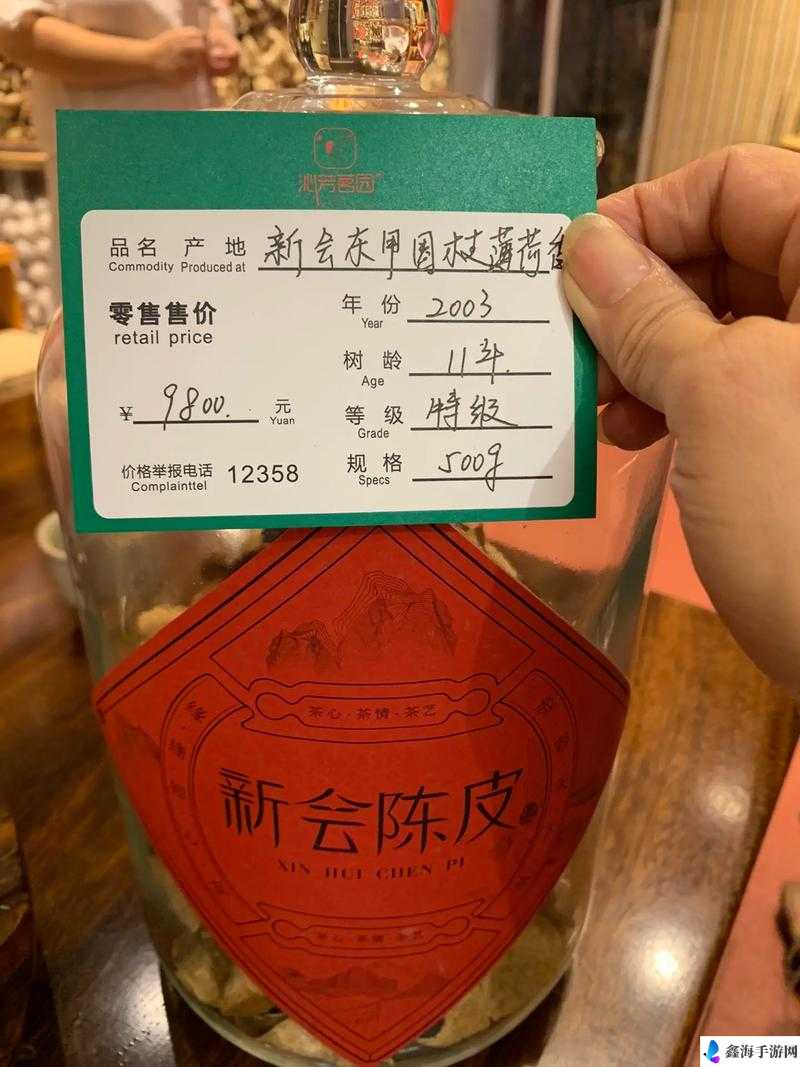 沁芳茗园
品名 产地 新会东甲圈枝薄荷香
Commodity Produced at
零售售价
retail price
年份 2003
Year
树龄 11年.
Age
¥ 9800. 元
Yuan
等级 特级
Grade
价格举报电话 12358
Complainttel
规格 500g
Specs
茶心·茶情·茶艺
新会陈皮
XIN HUI CHEN PI
茶心·茶情·茶艺
鑫海手游网